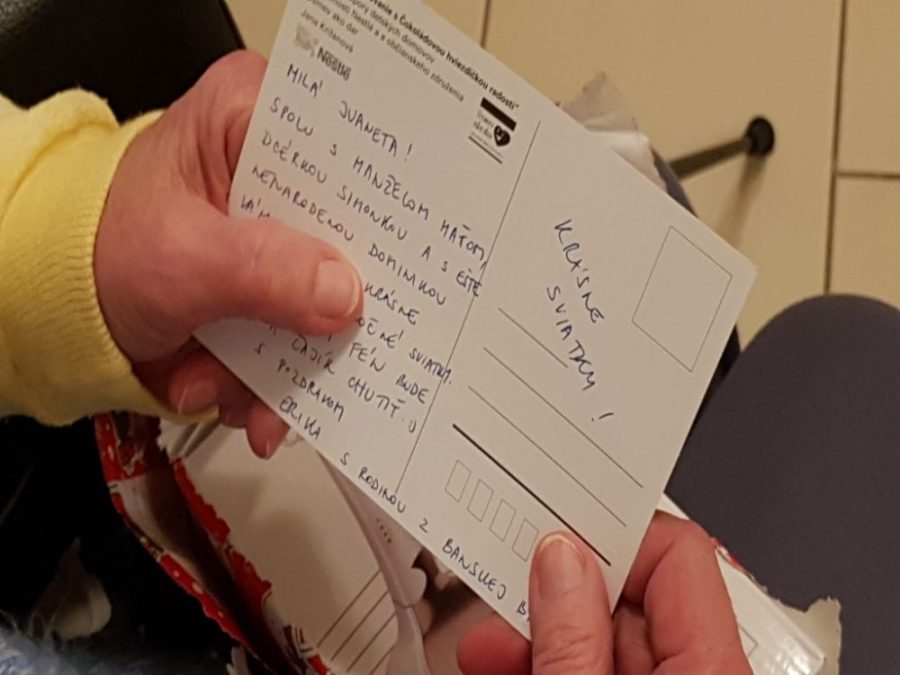 s Čokoládovou hviezdičkou radosti"
detských domovov
Nestlé a občianskeho združenia
ako dar
Jana Križanová
Nestlé
MILÁ JVANETA!
SPOLU S MANŽELOM MAŤOM,
DCÉRKOU SIMONKOU A S EŠTE
NENARODENOU DOMINKOU
KRÁSNE
SVIATKY.
FÉN BUDE
CHUTIŤ :)
S POZDRAVOM
ERIKA
S RODINOU Z BANSKEJ
KRÁSNE
SVIATKY!